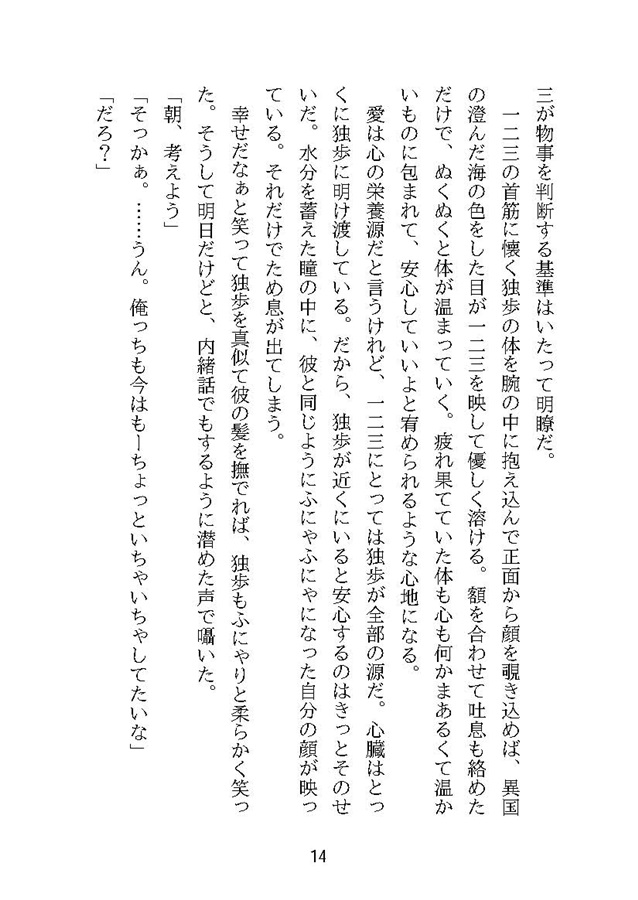 三が物事を判断する基準はいたって明瞭だ。
　一二三の首筋に懐く独歩の体を腕の中に抱え込んで正面から顔を覗き込めば、異国
の澄んだ海の色をした目が一二三を映して優しく溶ける。額を合わせて吐息も絡めた
だけで、ぬくぬくと体が温まっていく。疲れ果てていた体も心も何かまあるくて温か
いものに包まれて、安心していいよと宥められるような心地になる。
　愛は心の栄養源だと言うけれど、一二三にとっては独歩が全部の源だ。心臓はとっ
くに独歩に明け渡している。だから、独歩が近くにいると安心するのはきっとそのせ
いだ。水分を蓄えた瞳の中に、彼と同じようにふにゃふにゃになった自分の顔が映っ
ている。それだけでため息が出てしまう。
　幸せだなぁと笑って独歩を真似て彼の髪を撫でれば、独歩もふにゃりと柔らかく笑っ
た。そうして明日だけどと、内緒話でもするように潜めた声で囁いた。
「朝、考えよう」
「そっかぁ。……うん。俺っちも今はもーちょっといちゃいちゃしてたいな」
「だろ？」
14